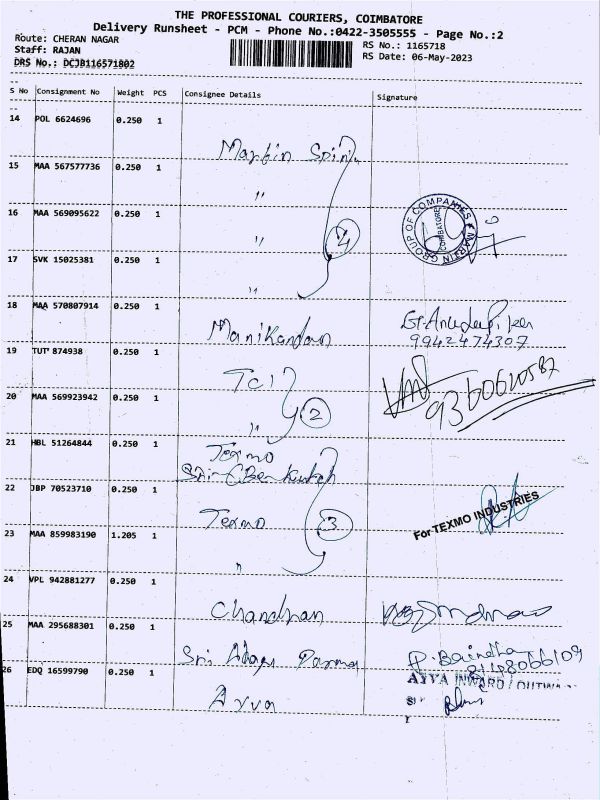 THE PROFESSIONAL COURIERS, COIMBATORE
Delivery Runsheet - PCM - Phone No.:0422-3505555 - Page No.:2
Route: CHERAN NAGAR
Staff: RAJAN
DRS No.: DCJB116571802
RS No.: 1165718
RS Date: 06-May-2023
S No Consignment No Weight PCS Consignee Details Signature
14 POL 6624696 0.250 1
Martin Spin
15 MAA 567577736 0.250 1
"
16 MAA 569095622 0.250 1
"
4
MARTIN GROUP OF COMPANIES
COIMBATORE
17 SVK 15025381 0.250 1
"
18 MAA 570807914 0.250 1
Manikandan
9942474307
19 TUT 874938 0.250 1
TCI
9360620587
20 MAA 569923942 0.250 1
"
2
21 HBL 51264844 0.250 1
Texmo
Sri
22 JBP 70523710 0.250 1
Texmo
3
For TEXMO INDUSTRIES
23 MAA 859983190 1.205 1
"
24 VPL 942881277 0.250 1
Chandran
25 MAA 295688301 0.250 1
Sri
26 EDQ 16599790 0.250 1
Ayya
AYYA INWARD / OUTWA